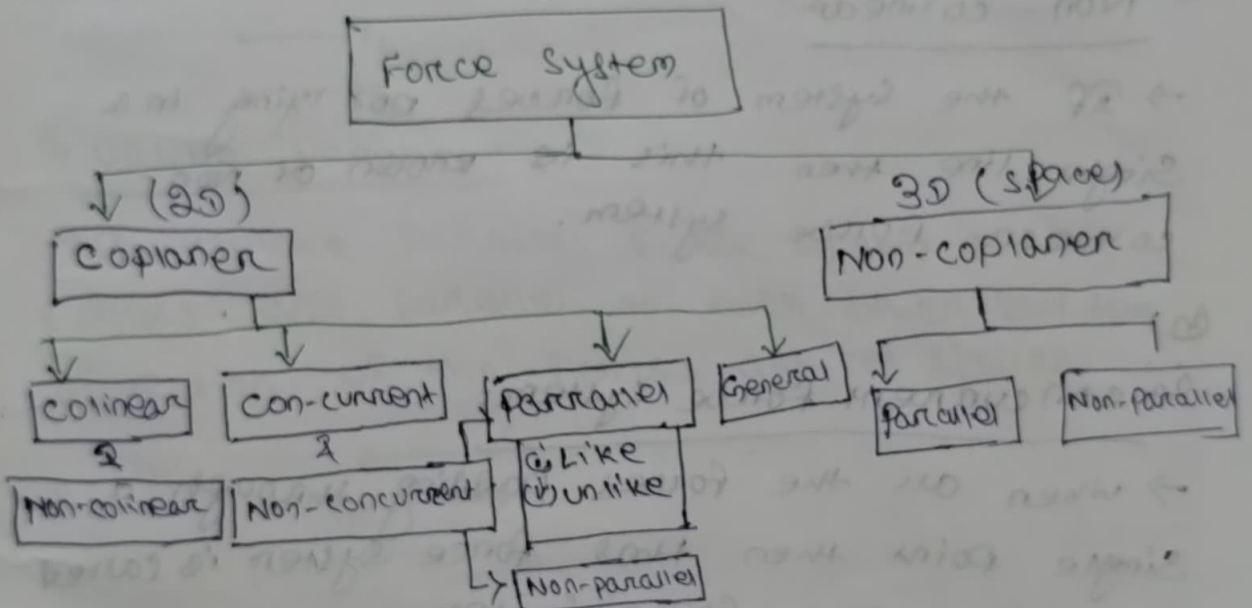 Force System
(2D)
3D (Space)
Coplaner
Non-coplaner
Colinear
Con-current
Parrallel
General
Parallel
Non-parallel
&
&
(i) Like
(ii) unlike
Non-colinear
Non-concurrent
Non-parallel